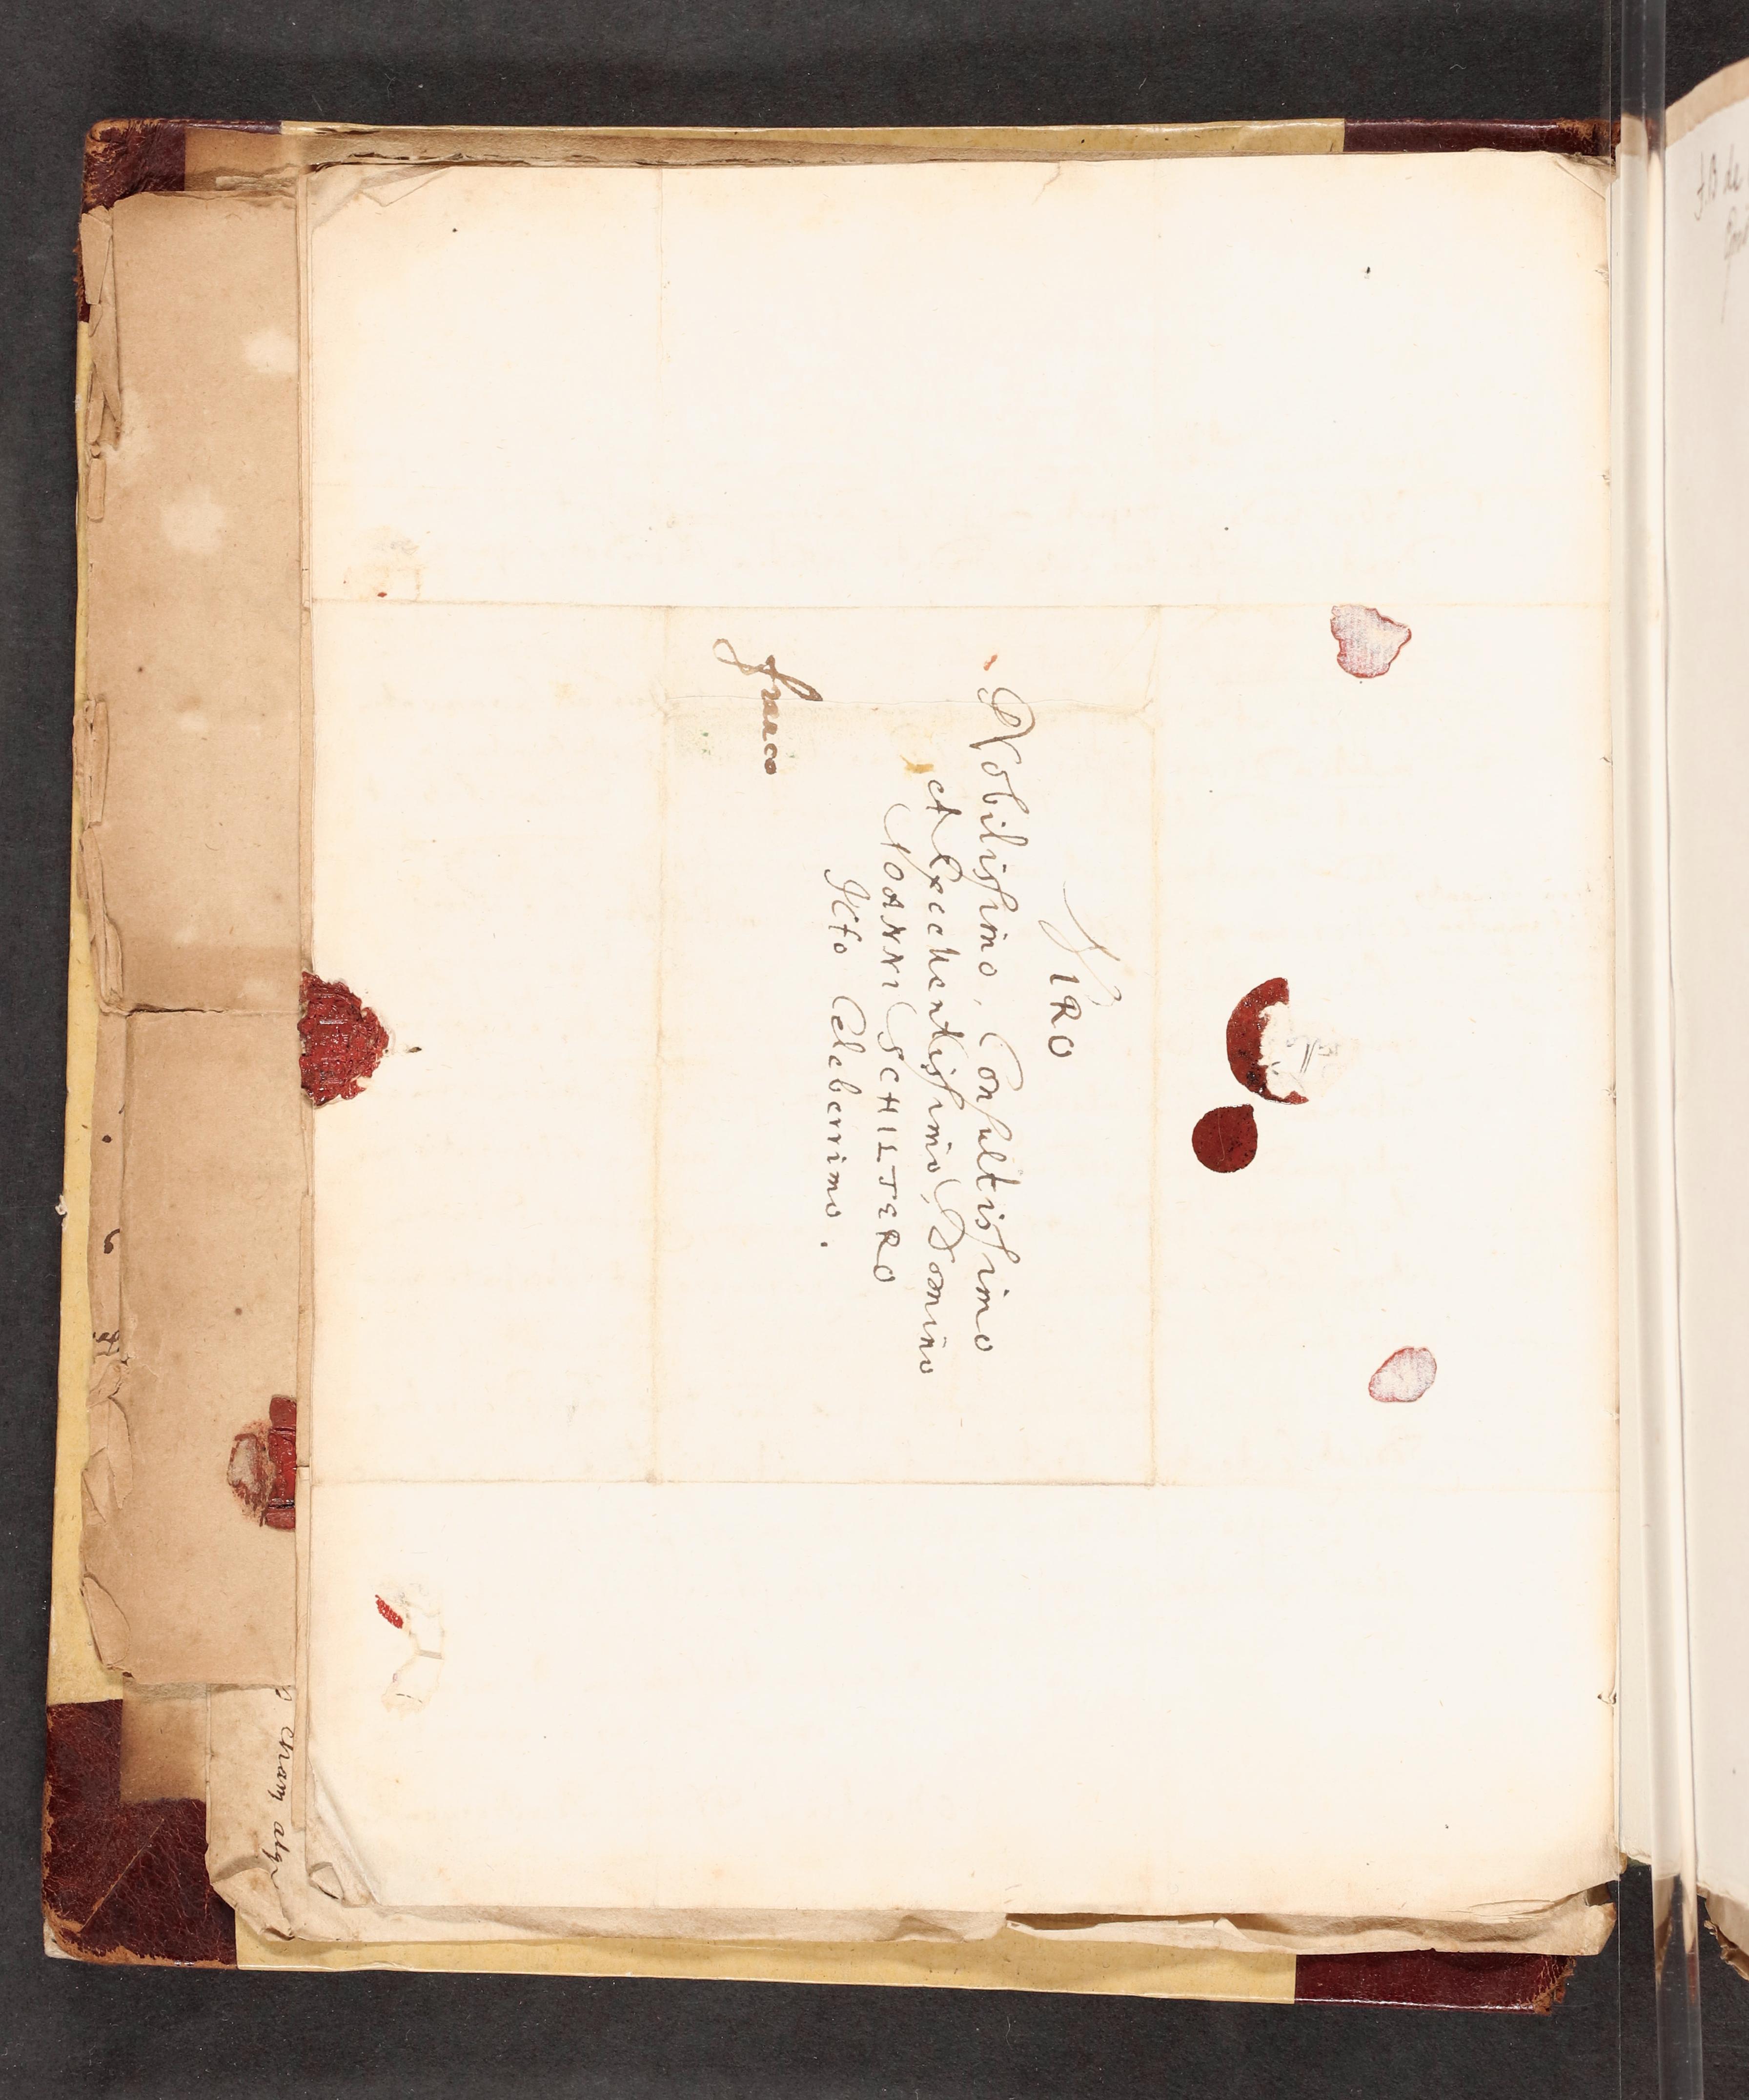 VIRO
Nobilissimo, Consultissimo
et Excellentissimo, Domino
IOANNI SCHILTERO
JCto Celeberrimo.
franco